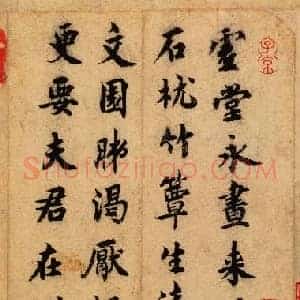 虛堂永晝来
石枕竹簟生
文園肺渴厭
更要夫君在
Shufaziliao.com